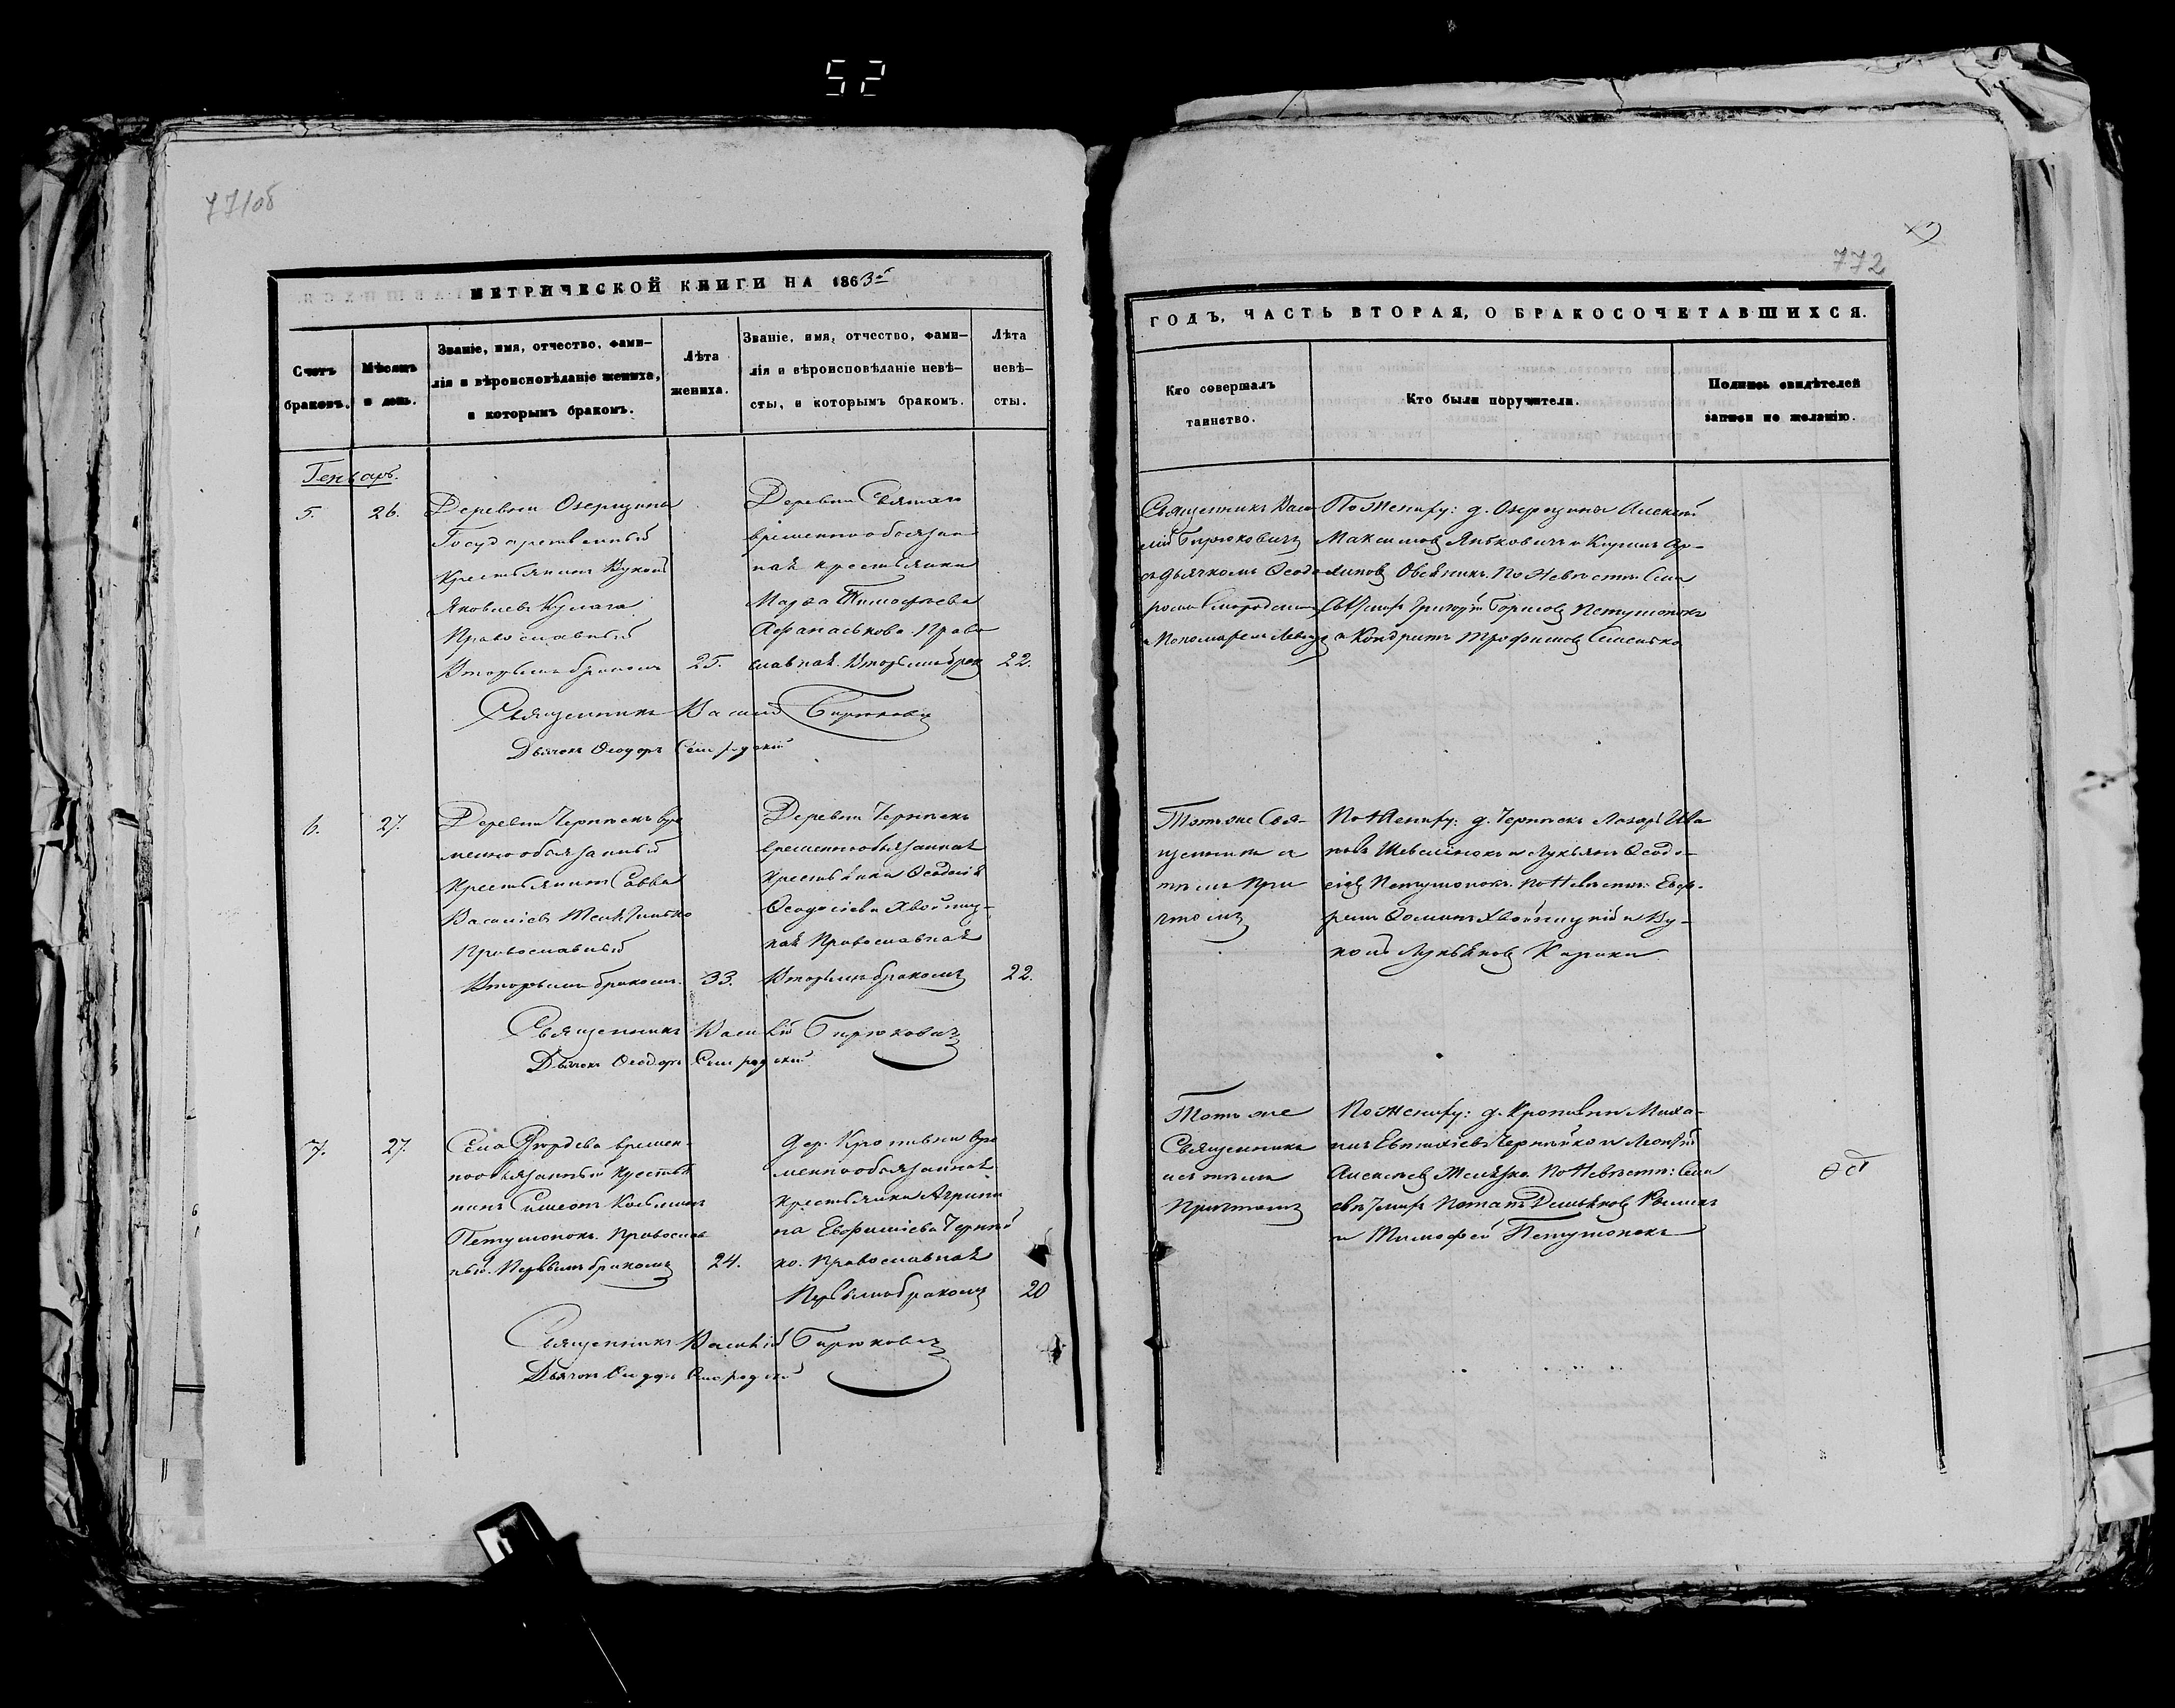 52
771об
772
МЕТРИЧЕСКОЙ КНИГИ НА 1863й
Счетъ браковъ.
Мѣсяцъ и день.
Званіе, имя, отчество, фами-
лія и вѣроисповѣданіе жениха,
и которымъ бракомъ.
Лѣта
жениха.
Званіе, имя, отчество, фами-
лія и вѣроисповѣданіе невѣ-
сты, и которымъ бракомъ.
Лѣта
невѣ-
сты.
Генварь.
5.
26.
Деревни Озерщина
Государственный
Крестьянинъ Вуколъ
Яковлевъ Кулага
Православный
Вторымъ бракомъ
25.
Деревни
временнообязан
ная крестьянка
Марѳа Тимофѣева
Афанаськова Право
славная. Вторымъ брак
22.
Священникъ Василій Бирюковичъ
Дьячокъ Ѳеодоръ
6.
27.
Деревни Чернѣекъ вре
меннообязанный
Крестьянинъ Савва
Василіевъ
Православный
Вторымъ бракомъ.
33.
Деревни Чернѣекъ
временнообязанная
Крестьянка Ѳеодосія
Ѳеодосіева Хвойниц-
кая Православная
Вторымъ бракомъ
22.
Священникъ Василій Бирюковичъ
Дьячокъ Ѳеодоръ
7.
27.
Села времен-
нообязанный крестья
нинъ Симеонъ Козьминъ
Петушонокъ. Православ
ный. Первымъ бракомъ
24.
Дер. Кропивни вре
меннообязанная
крестьянка Агрипи
на Евфиміева Черней
ко. Православная
Первымъ бракомъ
20
Священникъ Василій Бирюковичъ
Дьячокъ Ѳеодоръ
ГОДЪ, ЧАСТЬ ВТОРАЯ, О БРАКОСОЧЕТАВШИХСЯ.
Кто совершалъ
таинство.
Кто были поручители.
Подпись свидѣтелей
записи по желанію.
Священникъ Васи
лій Бирюковичъ
съ дьячкомъ Ѳеодо
ромъ
и Пономаремъ
По Жениху: д. Озерщина Алексѣй
Максимовъ Янковичъ и
Овсяникъ. По Невѣстѣ:
Григорій Борисовъ Петушонокъ
и Кондратъ Трофимовъ
Тотъ же Свя-
щенникъ съ
тѣмъ При
чтомъ
По Жениху: д. Чернѣекъ Лазарь Ива
новъ и Лукьянъ Ѳеодо-
сіевъ Петушонокъ. По Невѣстѣ: Евф-
ремъ Ѳоминъ Хвойницкій и Ву-
колъ Лукьяновъ
Тотъ же
Священникъ
съ тѣмъ
Причтомъ
По Жениху: д. Кропивни Миха-
илъ Евтихіевъ Чернейко и Леонтій
Алексѣевъ По Невѣстѣ: Села
Потапъ Демьяновъ
и Тимофей Петушонокъ